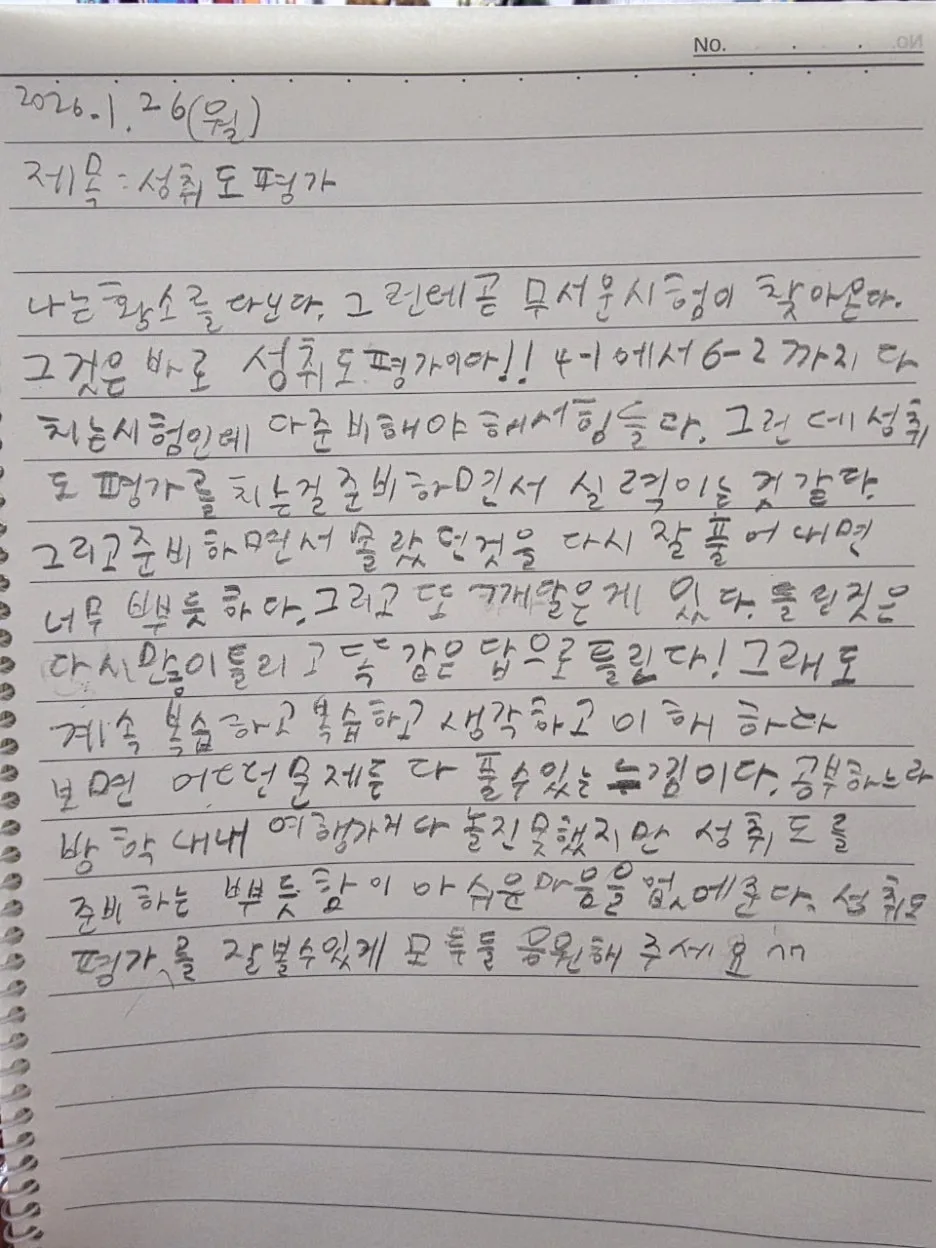 No.
2026.1.26(월)
제목:성취도평가
나는황소를다닌다. 그런데곧 무서운시험이 찾아온다.
그것은 바로 성취도평가이다!! 4-1에서 6-2까지 다
치는시험인데 다준비해야 해서힘들다. 그런데 성취
도 평가를 치는걸준비하면서 실력이는 것 같다.
그리고준비하면서 몰랐던것을 다시 잘 풀어내면
너무 뿌듯하다. 그리고 또 깨달은게 있다. 틀린것은
다시많이틀리고 똑같은 답으로틀린다! 그래도
계속 복습하고 복습하고 생각하고 이해 하다
보면 어려운문제를 다 풀수있는 느낌이다. 공부하느라
방학내내 여행가거나 놀진못했지만 성취도를
준비하는 뿌듯함이 아쉬운마음을 없애준다. 성취도
평가를 잘볼수있게 모두들 응원해 주세요 ^^